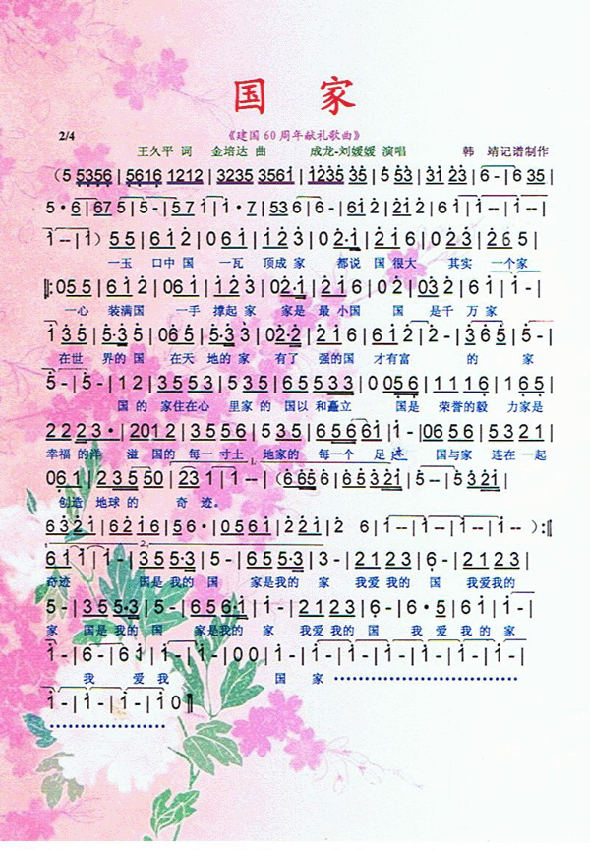 国 家
2/4 《建国60周年献礼歌曲》
王久平 词 金培达 曲 成龙-刘媛媛 演唱 韩 靖记谱制作
(5 5356 | 5616 1212 | 3235 3561 | 1235 35 | 5 53 | 31 23 | 6 - | 6 35 |
5·6 | 67 5 | 5 - | 5 7 1 | 1·7 | 53 6 | 6 - | 61 2 | 21 2 | 6 1 | 1 -- | 1 -- |
1 -- | 1 ) 5 5 | 6 1 2 | 0 6 1 | 1 2 3 | 0 2·1 | 2 1 6 | 0 2 3 | 2 6 5 |
一玉 口中国 一瓦 顶成家 都说 国很大 其实 一个家
|: 0 5 5 | 6 1 2 | 0 6 1 | 1 2 3 | 0 2·1 | 2 1 6 | 0 2 | 0 3 2 | 6 1 | 1 - |
一心 装满国 一手 撑起家 家是 最小国 国 是千 万家
1 3 5 | 5·3 5 | 0 6 5 | 5·3 5 | 0 2·2 | 2 1 6 | 6 1 2 | 2 - | 3 6 5 | 5 - |
在世 界的国 在天 地的家 有了 强的国 才有富 的 家
5 - | 5 - | 1 2 | 3 5 5 3 | 5 3 5 | 6 5 5 3 3 | 0 0 5 6 | 1 1 1 6 | 1 6 5 |
国的 家住在心 里家的 国以和矗立 国是 荣誉的毅 力家是
2 2 2 3· | 2 0 1 2 | 3 5 5 6 | 5 3 5 | 6 5 6 6 1 | 1 - | 0 6 5 6 | 5 3 2 1 |
幸福的洋 溢国的 每一寸土 地家的 每一个 足迹 国与家 连在一起
0 6 1 | 2 3 5 5 0 | 2 3 1 | 1 -- | ( 6 6 5 6 | 6 5 3 5 3 2 1 | 5 - | 5 3 2 1 |
创造 地球的 奇 迹。
6 3 2 1 | 6 2 1 6 | 5 6· | 0 5 6 1 | 2 2 1 | 2 6 | 1 -- | 1 - | 1 - | 1 - | 1 -- ) :|
6 1 1 | 1 - | 3 5 5·3 | 5 - | 6 5 5·3 | 3 - | 2 1 2 3 | 6 - | 2 1 2 3 |
奇迹 国是我的国 家是我的 家 我爱我的 国 我爱我的
5 - | 3 5 5·3 | 5 - | 6 5 6·1 | 1 - | 2 1 2 3 | 6 - | 6·5 | 6 1 | 1 - |
家 国是我的国 家是我的 家 我爱我的 国 我 爱 我 的 家
1 - | 6 - | 6 1 | 1 - | 1 - | 0 0 | 1 - | 1 - | 1 - | 1 - | 1 - | 1 - | 1 - |
我 爱我 国 家
1 - | 1 - | 1 - | 1 0 ||